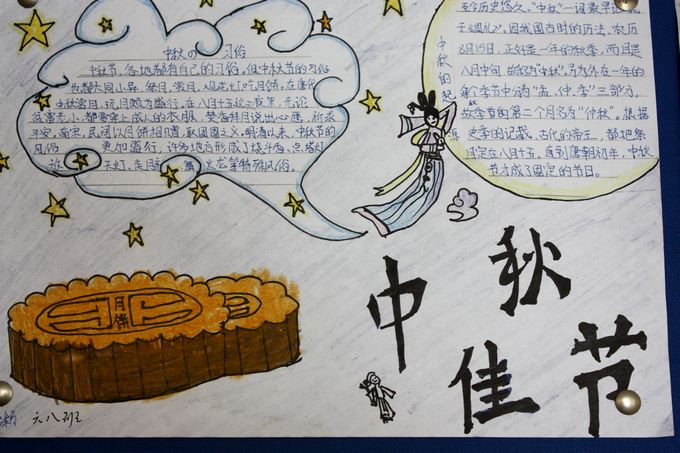 中秋の 习俗
中秋节,各地都有自己的习俗,但中秋节的习俗
也都大同小异。祭月、赏月、观花灯、吃月饼。在唐代
中秋赏月、玩月颇为盛行。在八月十五这之夜里,无论
贫富老小,都要穿上成人的衣服,焚香拜月说出心愿,祈求
平安。南宋,民间以月饼相赠,取团圆之义。明清以来,中秋节的
风俗 更加盛行,许多地方形成了烧斗香、点塔灯
放 天灯、走月 火龙等特殊风俗。
中秋的起源
至今历史悠久。"中秋"一词最早
《周礼》。因我国古时的历法,农历
8月15日,正好是一年的秋季,而且是
八月中旬,故称为"中秋"。另为外在一年的
每个季节中分为"孟、仲、季"三部分,
故季节的第二个月名为"仲秋"。根据
史季的记载,古代的帝王,都把祭
月定在八月十五。直到唐朝初年,中秋
节才成了固定的节日。
月饼
中秋
佳节
六八班